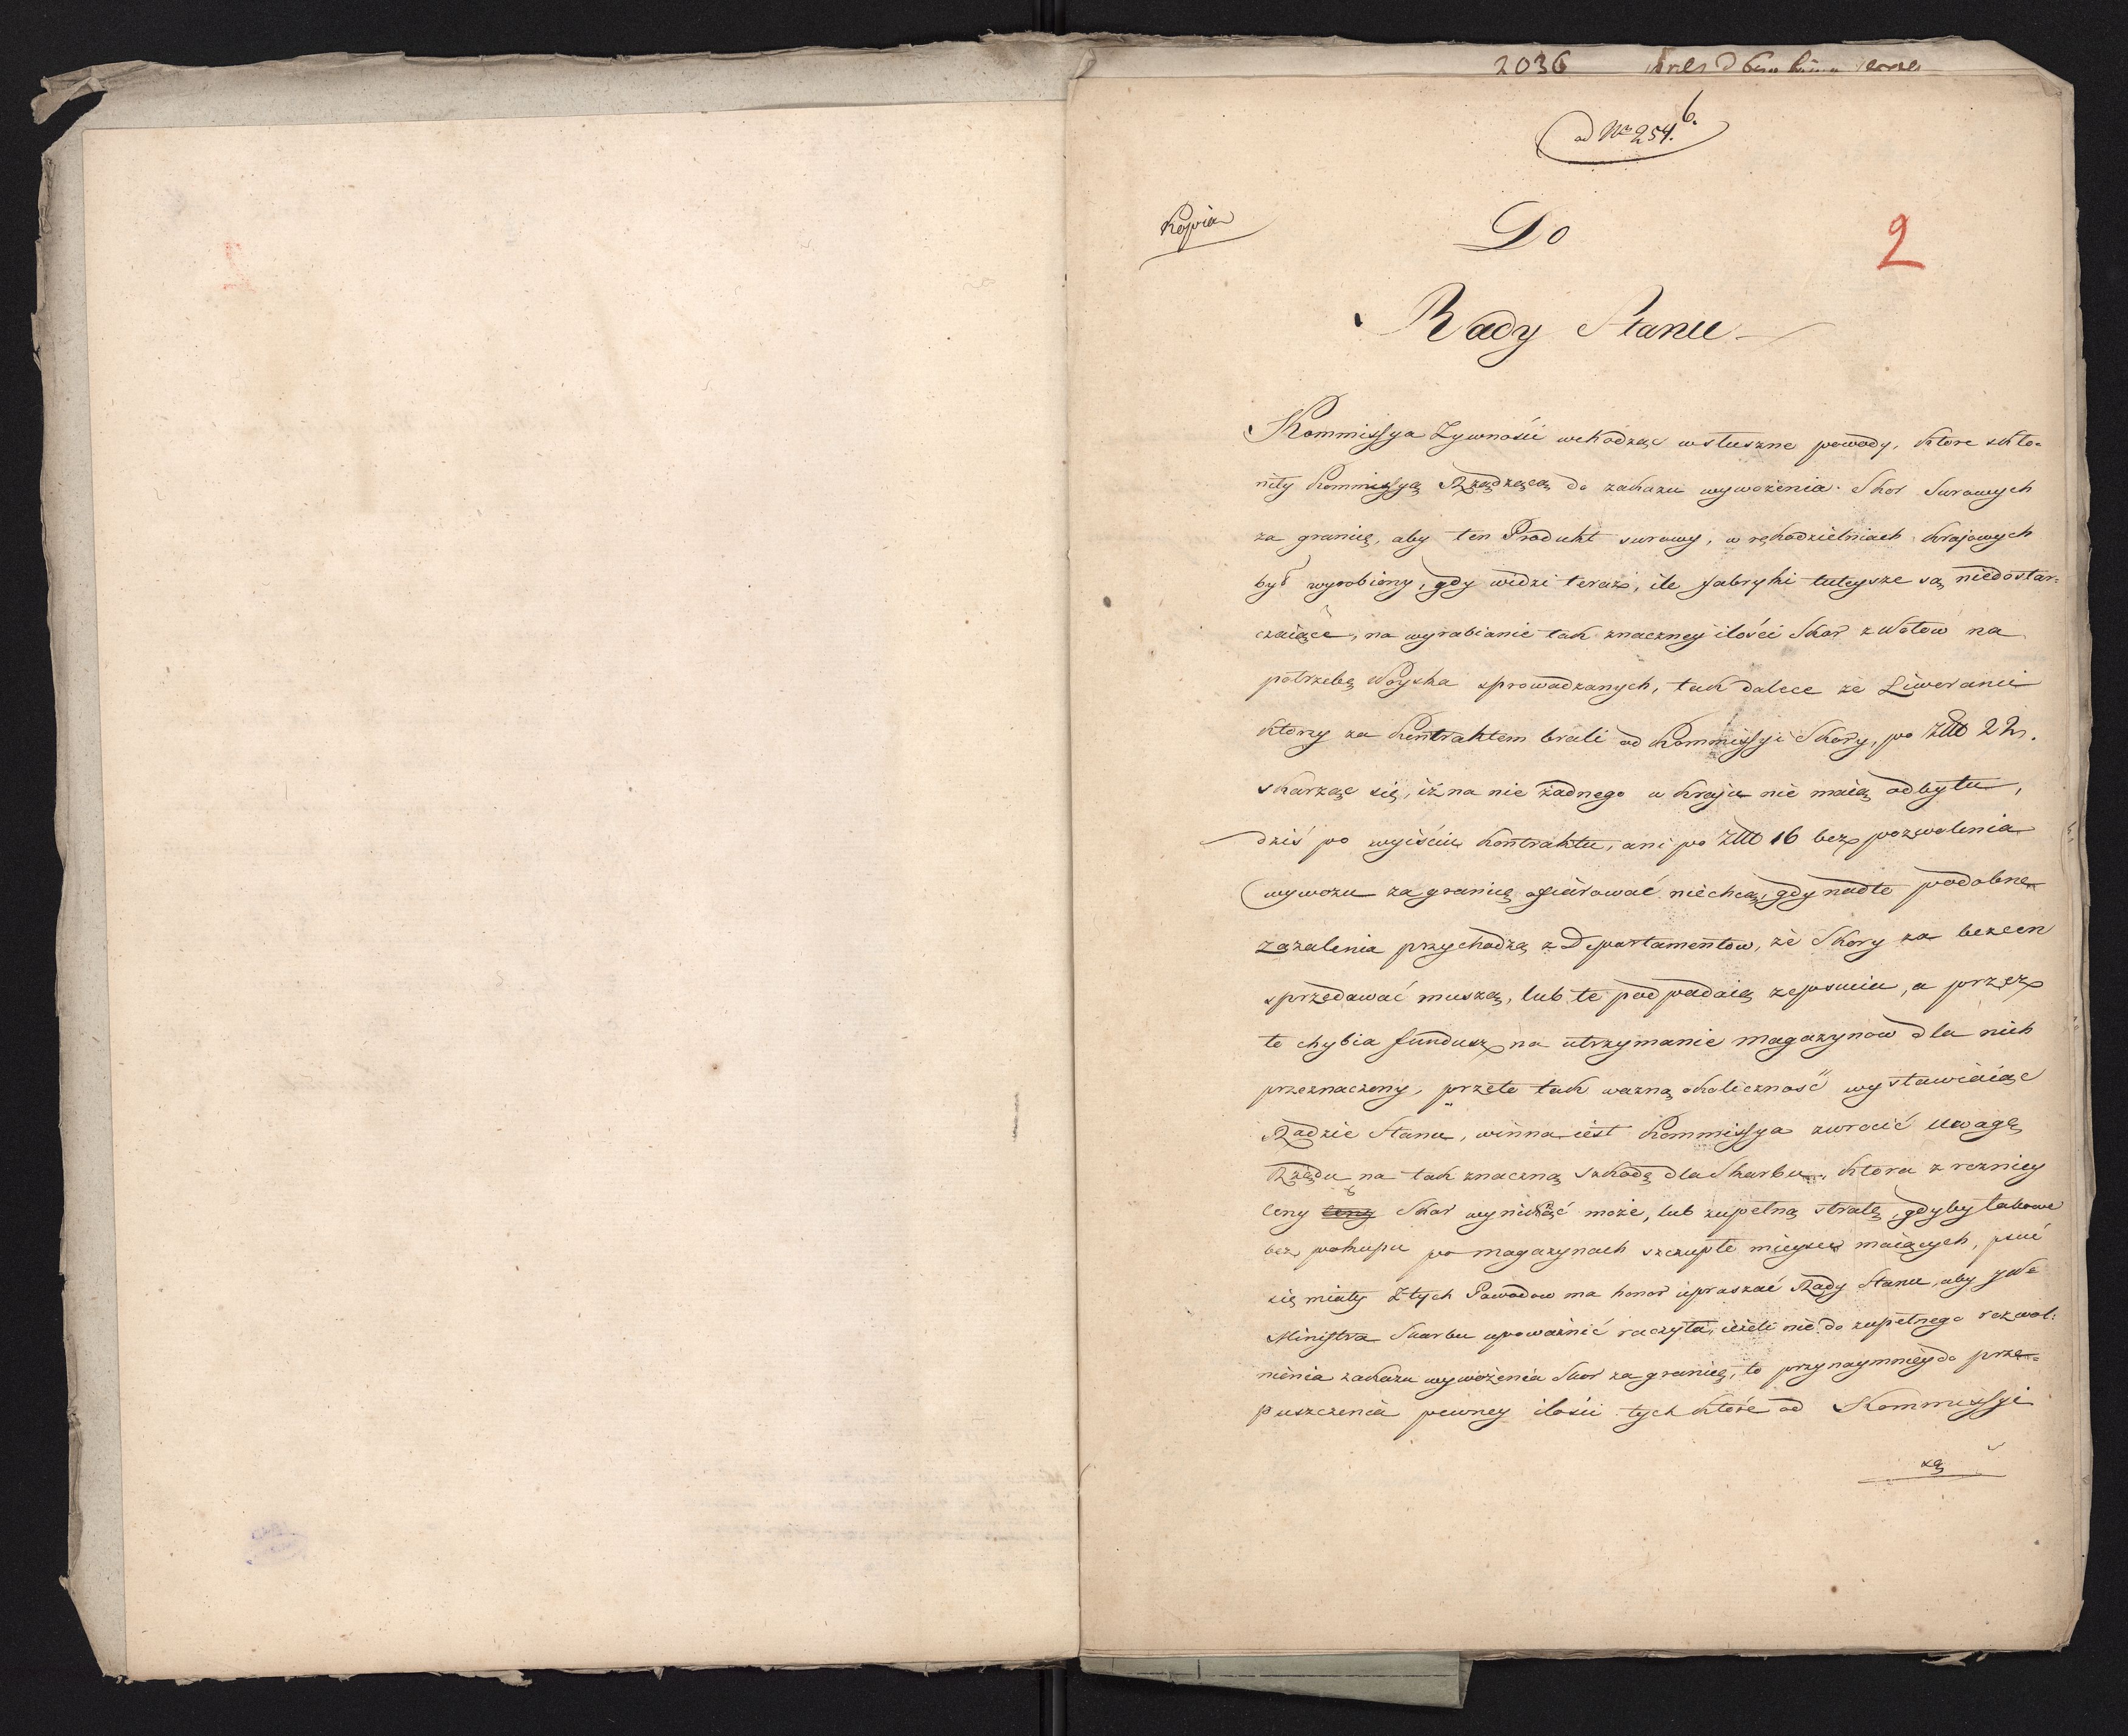 2036
ad Nro 254. 6.
Kopia
Do
2
Rady Stanu
Kommissya Zywności wchodząc w słuszne powody, ktore skło-
niły Kommissyą Rządzącą do zakazu wywożenia Skor Surowych
za granicę, aby ten Produkt surowy, w rękodzielniach krajowych
był wyrobiony, gdy widzi teraz, ile fabryki tuteysze są niedostar-
czaiące, na wyrabianie tak znaczney ilości Skor z Wołow na
potrzebę Woyska sprowadzanych, tak dalece że Liweranci
ktorzy za Kontraktem brali od Kommissyi Skory, po Złł 22
skarząc się, iż na nie żadnego w kraju nie maią odbytu,
dziś po wyiściu kontraktu, ani po Złł 16 bez pozwolenia
wywozu za granicę ofiarować niechcą, gdy nadto podobne
zażalenia przychodzą z Departamentow, że Skory za bezcen
sprzedawać muszą, lub te podpadaią zepsuciu, a przez
to chybia fundusz na utrzymanie magazynow dla nich
przeznaczony, przeto tak ważną okoliczność wystawiaiąc
Radzie Stanu, winna iest Kommissya zwrocić uwagę
Rządu na tak znaczną szkodę dla Skarbu, ktora z rożnicy
Ceny Ceny Skor wyniknąć może, lub zupełną stratę, gdyby takowe
bez pokupu po magazynach szczupłe mieysce maiących, psuć
się miały Z tych Powodow ma honor upraszać Rady Stanu, aby JW
Ministra Skarbu upoważnić raczyła, ieżeli nie do zupełnego rozwol-
nienia zakazu wywożenia Skor za granicę, to przynaymniey do prze-
puszczenia pewney ilości tych ktore od Kommissyi
za